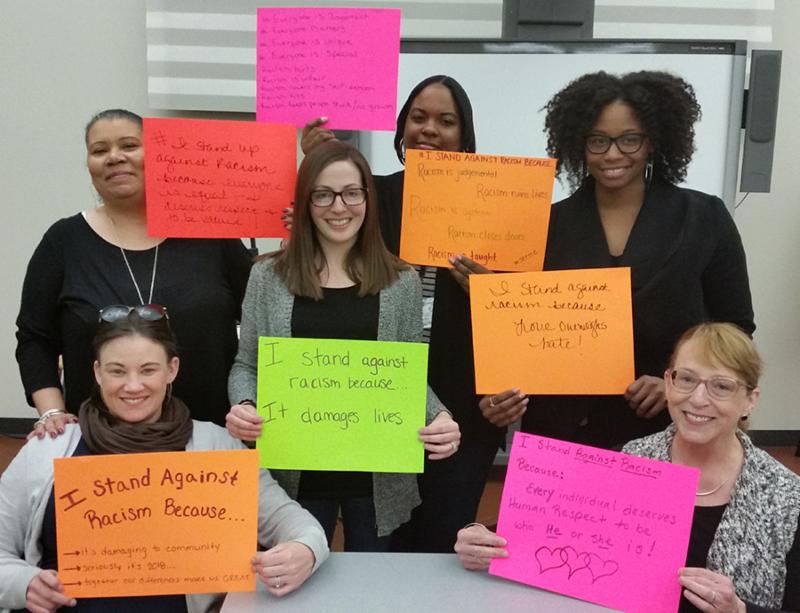 * Everyone is Important
* Everyone is unique
* Everyone is Special
Racism hurts
Racism is unfair
# I stand up
against Racism
because everyone
is equal
deserves respect
to be valued
# I STAND AGAINST RACISM BECAUSE
Racism is judgemental
Racism ruins lives
Racism is systemic
Racism closes doors
Racism is taught
I Stand against
racism because
Love Outweighs
hate!
I stand against
racism because...
It damages lives
I Stand Against
Racism Because...
→ it's damaging to community
→ seriously it's 2018...
→ together our differences make us GREAT
I Stand Against Racism
Because:
Every individual deserves
Human Respect to be
who He or She is!